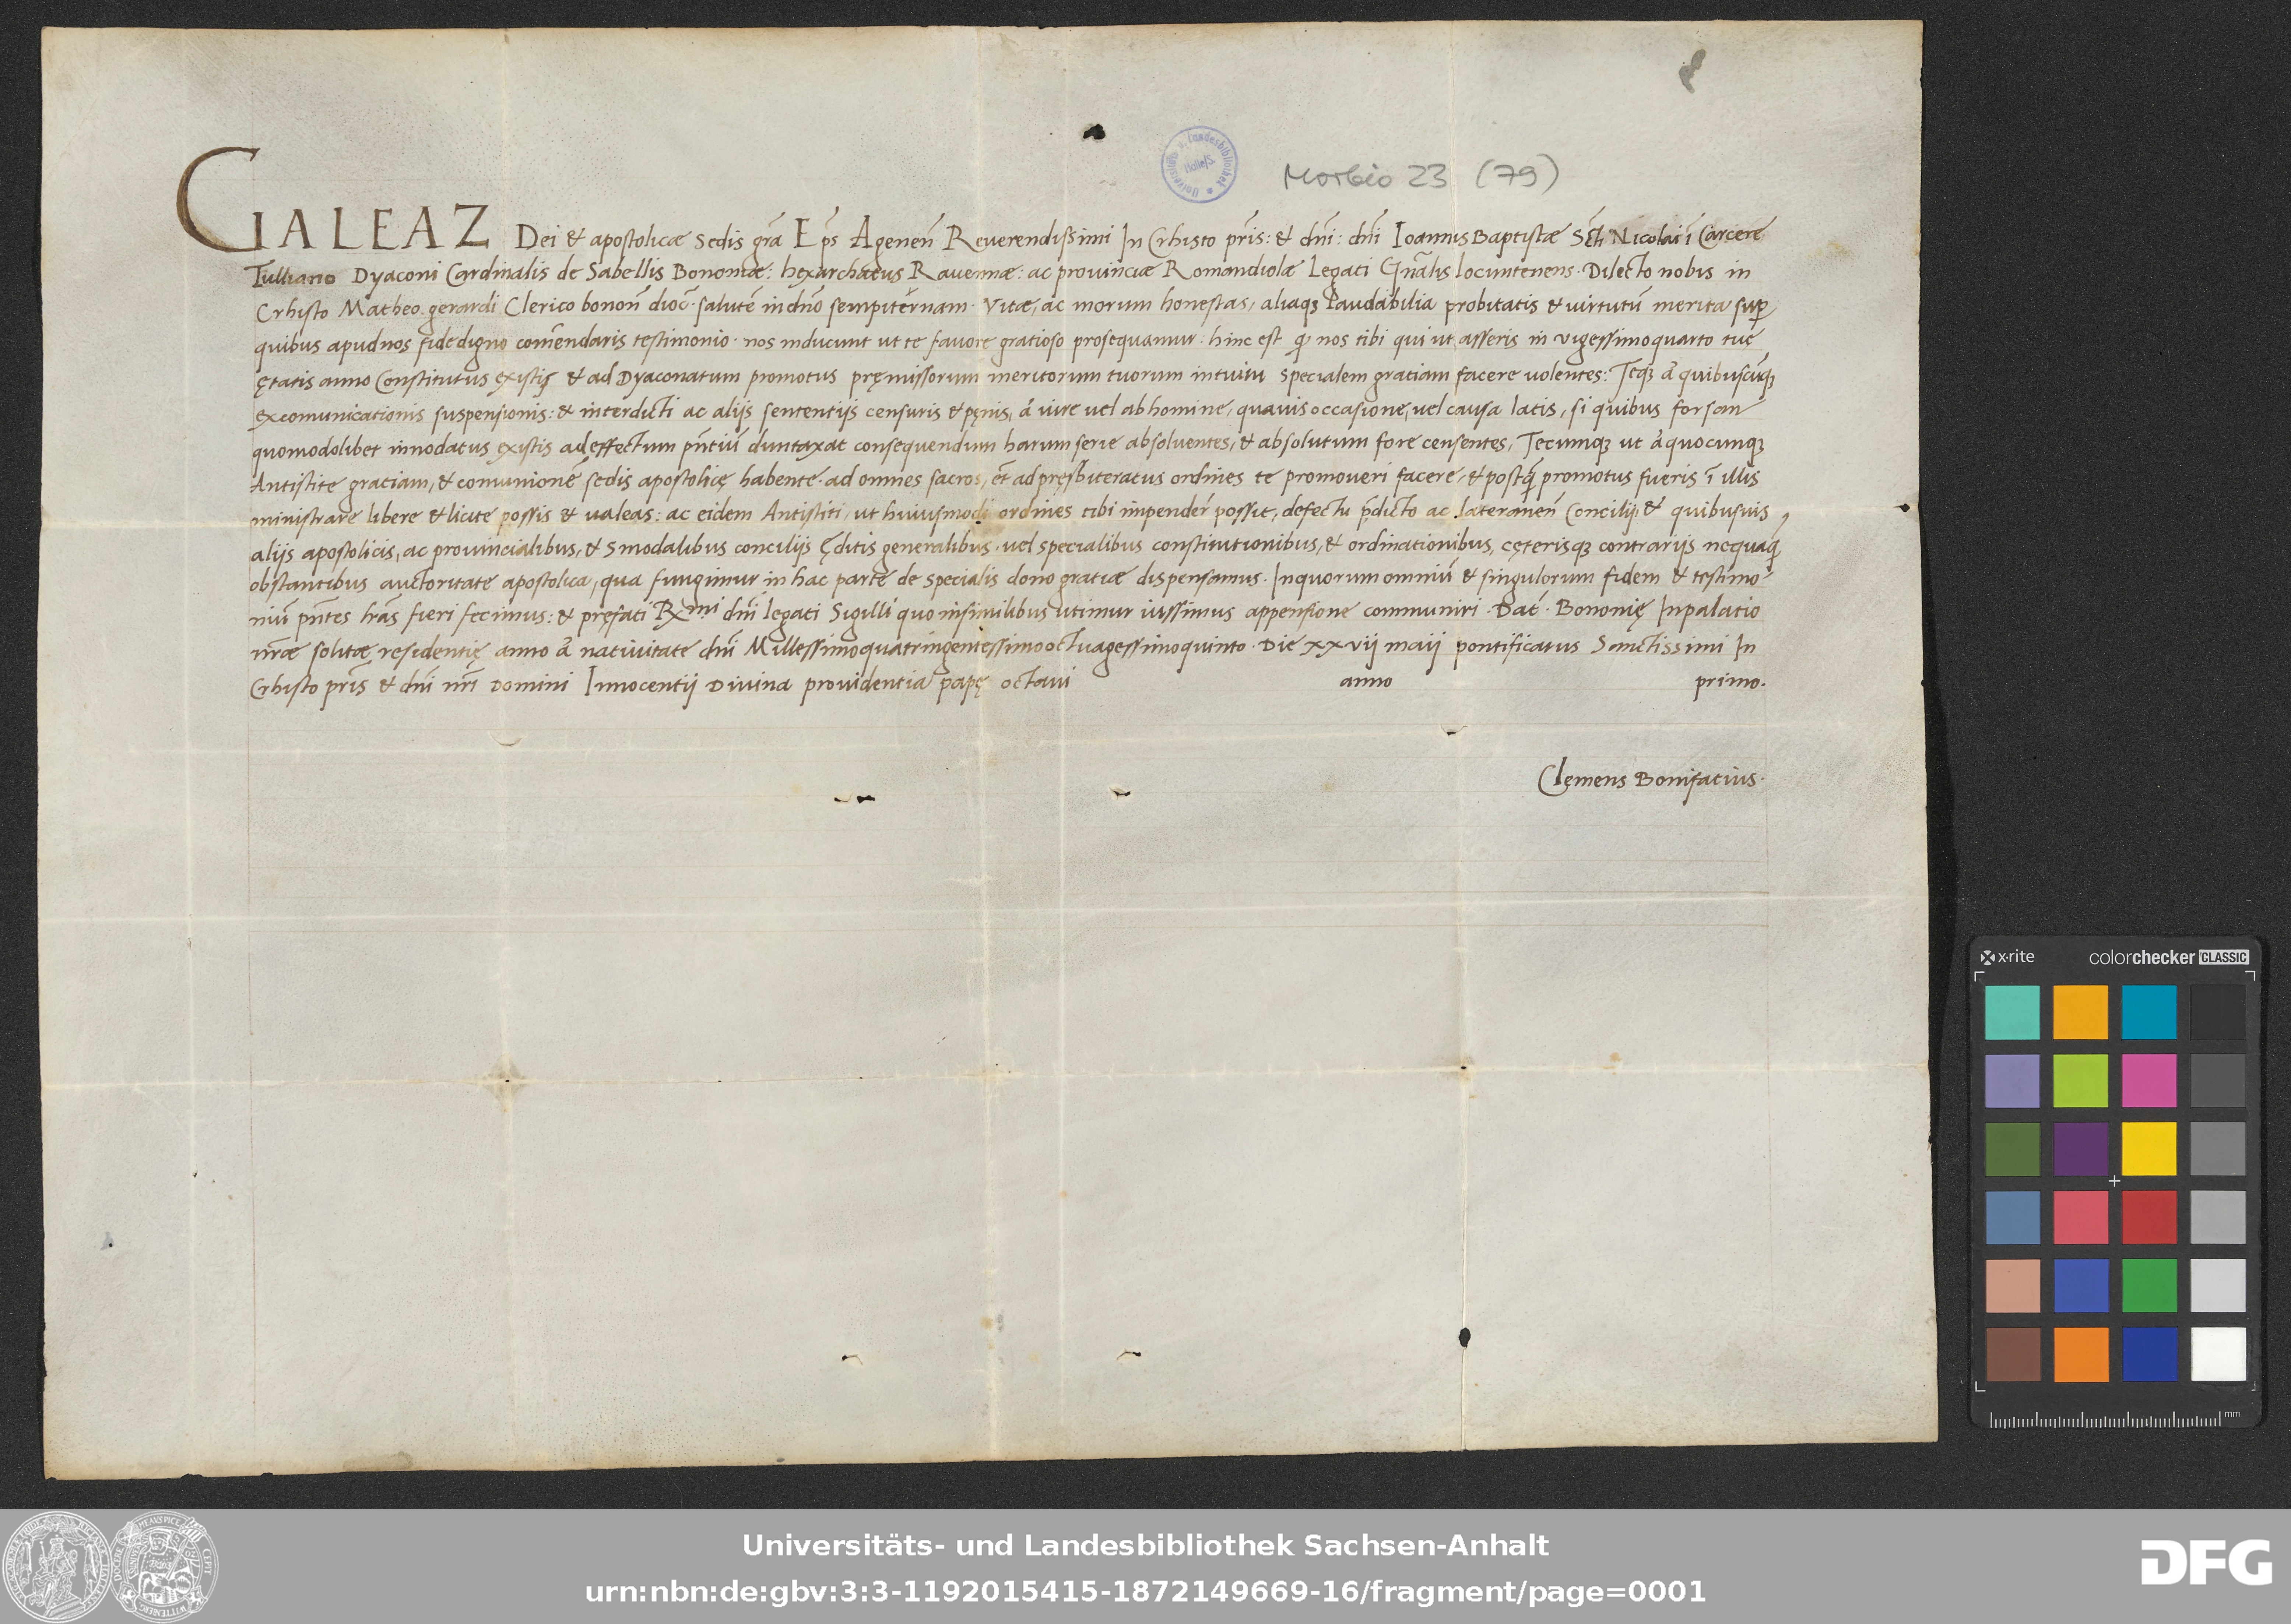 Morbio 23 (79)
GALEAZ Dei & apostolicæ Sedis gr̃a Ep̃s Agenen̄ Reuerendissimi In Crhisto pr̃is: & dñi: dñi Ioannis Baptistæ Sc̃ti Nicolai ī Carcere
Tulliano Dyaconi Cardinalis de Sabellis Bononiæ: hexarchatus Rauennæ: ac prouinciæ Romandiolæ Legati Gn̄alis locuntenens. Dilecto nobis in
Crhisto Matheo gerardi Clerico bonon̄ dioc̄. salutē in dn̄o sempiternam. Vitæ, ac morum honestas, aliaqꝫ laudabilia probitatis & uirtutū merita suꝑ
quibus apud nos fidedigno com̄endaris testimonio. nos inducunt ut te fauore gratioso prosequamur. hinc est ꝙ nos tibi qui ut asseris in vigessimoquarto tuę
ętatis anno Constitutus existis & ad Dyaconatum promotus pręmissorum meritorum tuorum intuitu specialem gratiam facere uolentes: Teqꝫ á quibuscūqꝫ
excomunicationis suspensionis: & interdicti ac alijs sententijs censuris & pęnis, á iure uel ab homine, quauis occasione, uel causa latis, si quibus forsan
quomodolibet innodatus existis ad effectum pn̄tiū duntaxat consequendum harum serie absoluentes, & absolutum fore censentes, Tecumqꝫ ut á quocunqꝫ
Antistite gratiam, & comunionē sedis apostolicę habente. ad omnes sacros, et̄ ad pręsbiteratus ordines te promoueri facere, & postꝙ̄ promotus fueris ī illis
ministrare libere & licite possis & ualeas: ac eidem Antistiti, ut huiusmodi ordines tibi impender̄ possit, defectu p̄dicto ac lateranen̄ Concilij, & quibusuis
alijs apostolicis, ac prouincialibus, & Sinodalibus concilijs ęditis generalibus, uel specialibus constitutionibus, & ordinationibus, cęterisqꝫ contrarijs nequaꝙ̄
obstantibus auctoritate apostolica, qua fungimur in hac parte de specialis dono gratiæ dispensamus. In quorum omniū & singulorum fidem & testimo-
niū pn̄tes lr̄as fieri fecimus: & pręfati Rx̄mi dn̄i legati Sigilli quo in similibus utimur iussimus appensione communiri. Dat̄. Bononię In palatio
nr̄æ solitæ residentię anno á natiuitate dn̄i Millessimoquatringentessimooctuagessimoquinto. Die xxvij maij pontificatus Sanctissimi In
Crhisto pr̄is & dn̄i nr̄i Domini Innocentij Diuina prouidentia papę octaui anno primo.
Clęmens Bonifacius.
x·rite colorchecker CLASSIC
mm
Universitäts- und Landesbibliothek Sachsen-Anhalt
urn:nbn:de:gbv:3:3-1192015415-1872149669-16/fragment/page=0001
DFG